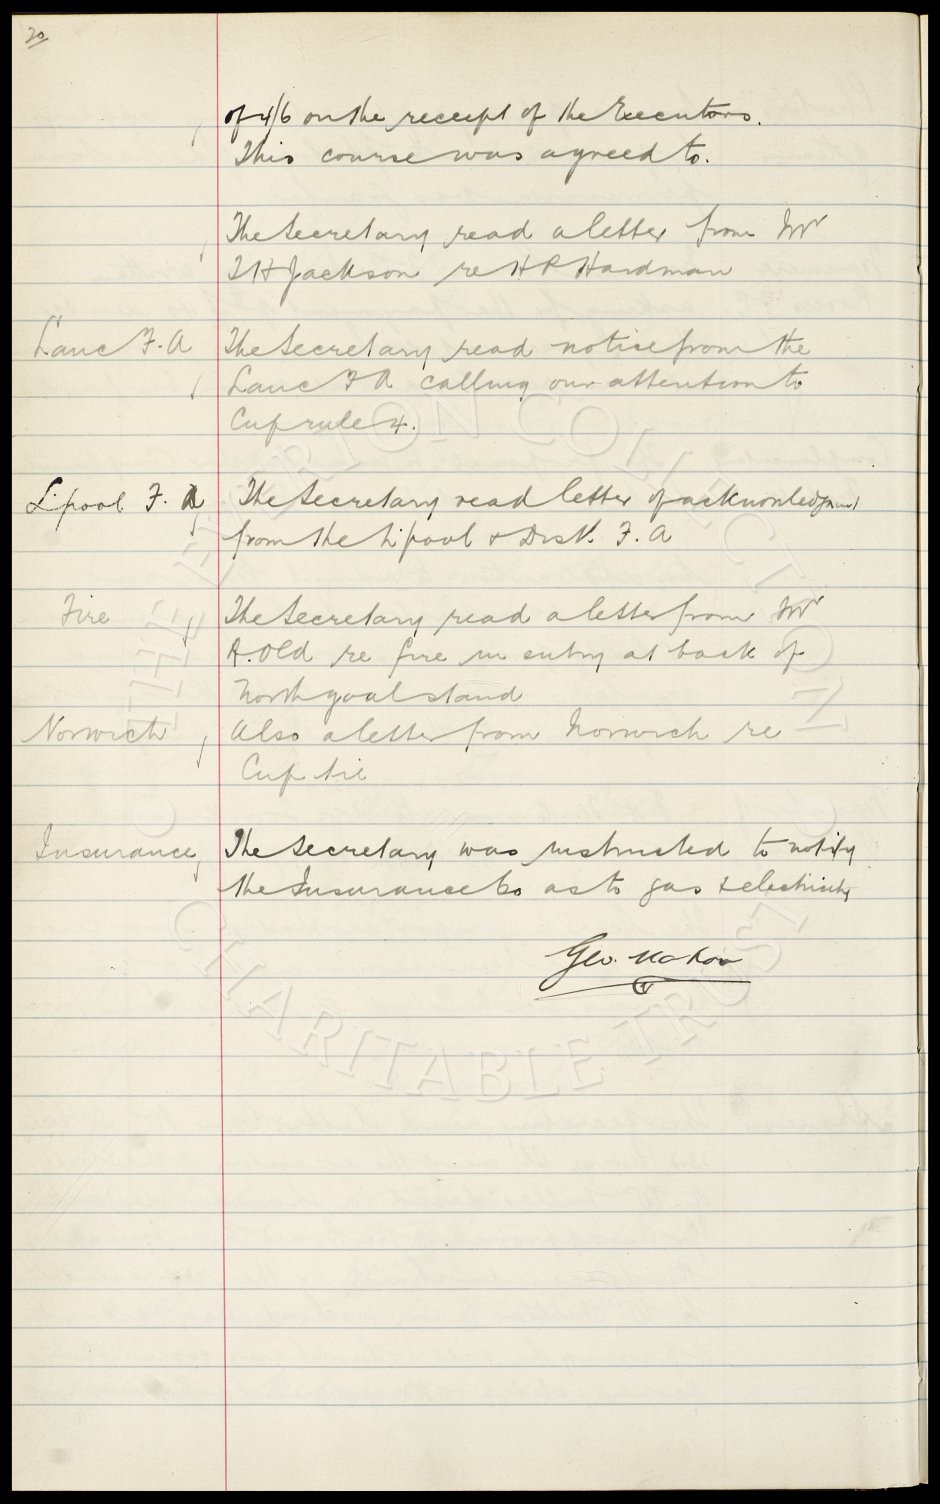 20
of 4/6 on the receipt of the Executors.
This course was agreed to.
The Secretary read a letter from Mr
T H Jackson re H P Hardman
Lanc F. A The Secretary read notice from the
Lanc F A calling our attention to
Cup rule 4.
L'pool F. A The Secretary read letter of acknowledgment
from the L'pool & Dist. F. A
Fire The Secretary read a letter from Mr
A. Old re fire in entry at back of
North goal stand
Norwich, Also a letter from Norwich re
Cup tie
Insurance, The Secretary was instructed to notify
the Insurance Co as to gas & electricity
Geo. Mahon
THE EVERTON COLLECTION
CHARITABLE TRUST